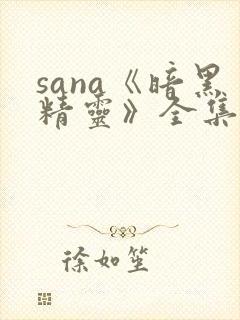 sana《暗黑
精靈》全集
徐如笙